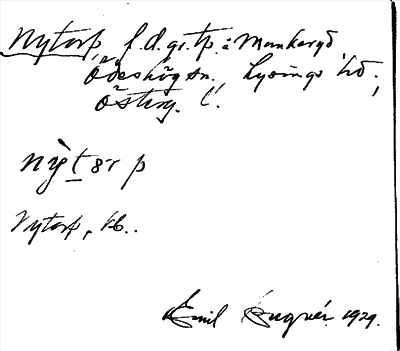 Nytorp, f.d. gr. tp. å Munkeryd
Ödeshög sn., Lysings hd.,
Österg. l.
nỳt 8r p
Nytorp, kb..
Emil 1929.